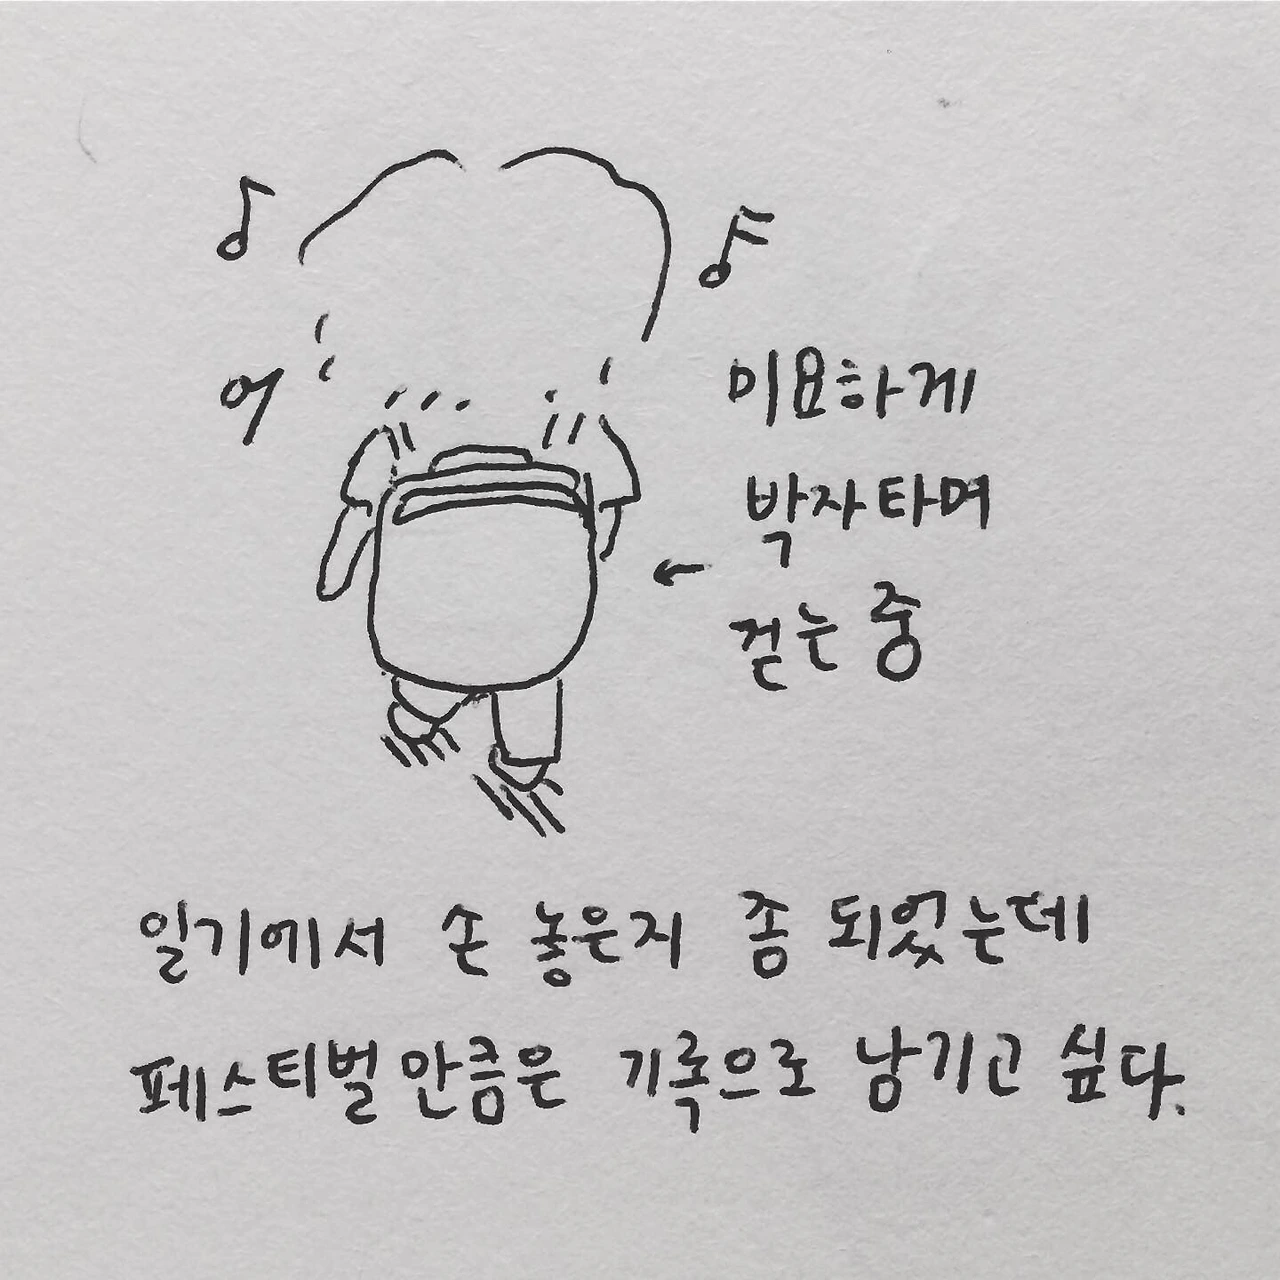 미묘하게
박자타며
걷는 중
일기에서 손 놓은지 좀 되었는데
페스티벌만큼은 기록으로 남기고 싶다.